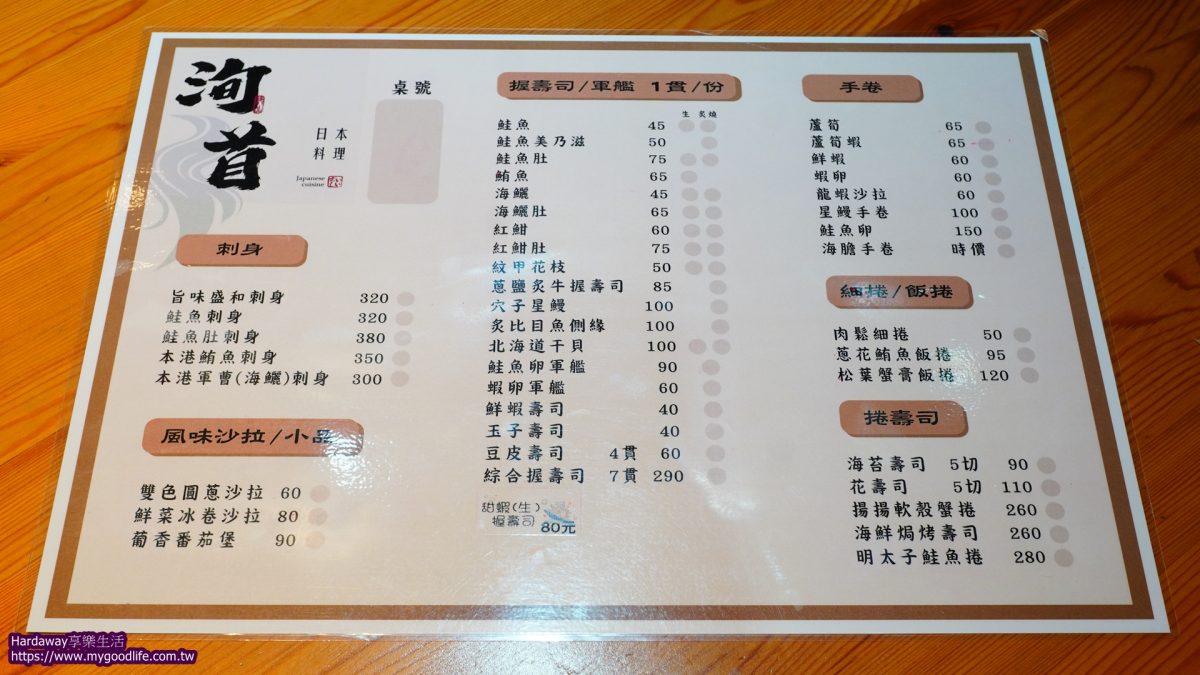 洵首
日本
料理
Japanese
cuisine
桌號
刺身
旨味盛和刺身 320
鮭魚刺身 320
鮭魚肚刺身 380
本港鮪魚刺身 350
本港軍曹(海鱺)刺身 300
風味沙拉/小品
雙色圓蔥沙拉 60
鮮菜冰卷沙拉 80
葡香番茄堡 90
握壽司/軍艦 1貫/份
生 炙燒
鮭魚 45
鮭魚美乃滋 50
鮭魚肚 75
鮪魚 65
海鱺 45
海鱺肚 65
紅魽 60
紅魽肚 75
紋甲花枝 50
蔥鹽炙牛握壽司 85
穴子星鰻 100
炙比目魚側緣 100
北海道干貝 100
鮭魚卵軍艦 90
蝦卵軍艦 60
鮮蝦壽司 40
玉子壽司 40
豆皮壽司 4貫 60
綜合握壽司 7貫 290
甜蝦(生)
握壽司 80元
手卷
蘆筍 65
蘆筍蝦 65
鮮蝦 60
蝦卵 60
龍蝦沙拉 60
星鰻手卷 100
鮭魚卵 150
海膽手卷 時價
細捲/飯捲
肉鬆細捲 50
蔥花鮪魚飯捲 95
松葉蟹膏飯捲 120
捲壽司
海苔壽司 5切 90
花壽司 5切 110
揚揚軟殼蟹捲 260
海鮮焗烤壽司 260
明太子鮭魚捲 280
Hardaway享樂生活
https://www.mygoodlife.com.tw